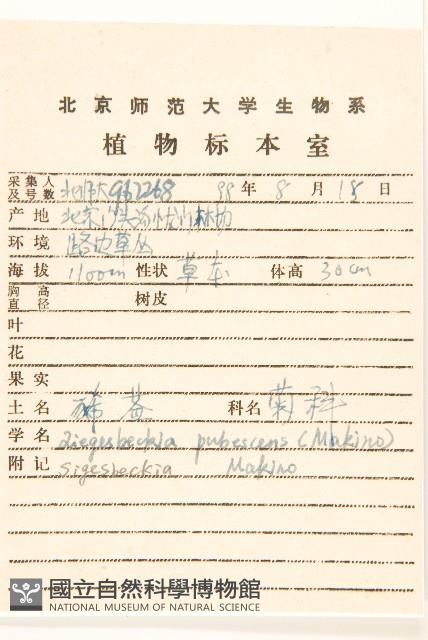 北京师范大学生物系
植物标本室
采集人及号数 北师大 992268 99年 8月 18日
产地 北京
环境 路边草丛
海拔 1100m 性状 草本 体高 30cm
胸高直径 树皮
叶
花
果实
土名 豨莶 科名 菊科
学名 Siegesbeckia pubescens (Makino)
附记 Sigesbeckia Makino
國立自然科學博物館
NATIONAL MUSEUM OF NATURAL SCIENCE